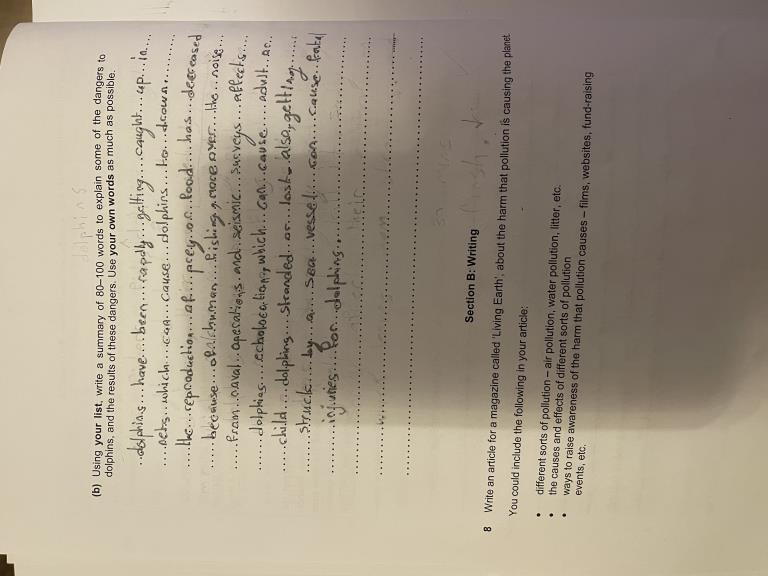 dolphins
(b) Using your list, write a summary of 80–100 words to explain some of the dangers to
dolphins, and the results of these dangers. Use your own words as much as possible.
dolphins have been rapdly getting caught up in
nets which can cause dolphins to drown.
the reproduction of prey or food has decreased
because of human fishing, moreover the noise
from naval operations and seismic surveys affects
dolphins echolocation, which can cause adult or
child dolphins stranded or lost also, getting
struck by a sea vessel can cause fatal
injuries for dolphins.
Section B: Writing
8 Write an article for a magazine called 'Living Earth', about the harm that pollution is causing the planet
You could include the following in your article:
• different sorts of pollution – air pollution, water pollution, litter, etc.
• the causes and effects of different sorts of pollution
• ways to raise awareness of the harm that pollution causes – films, websites, fund-raising
events, etc.